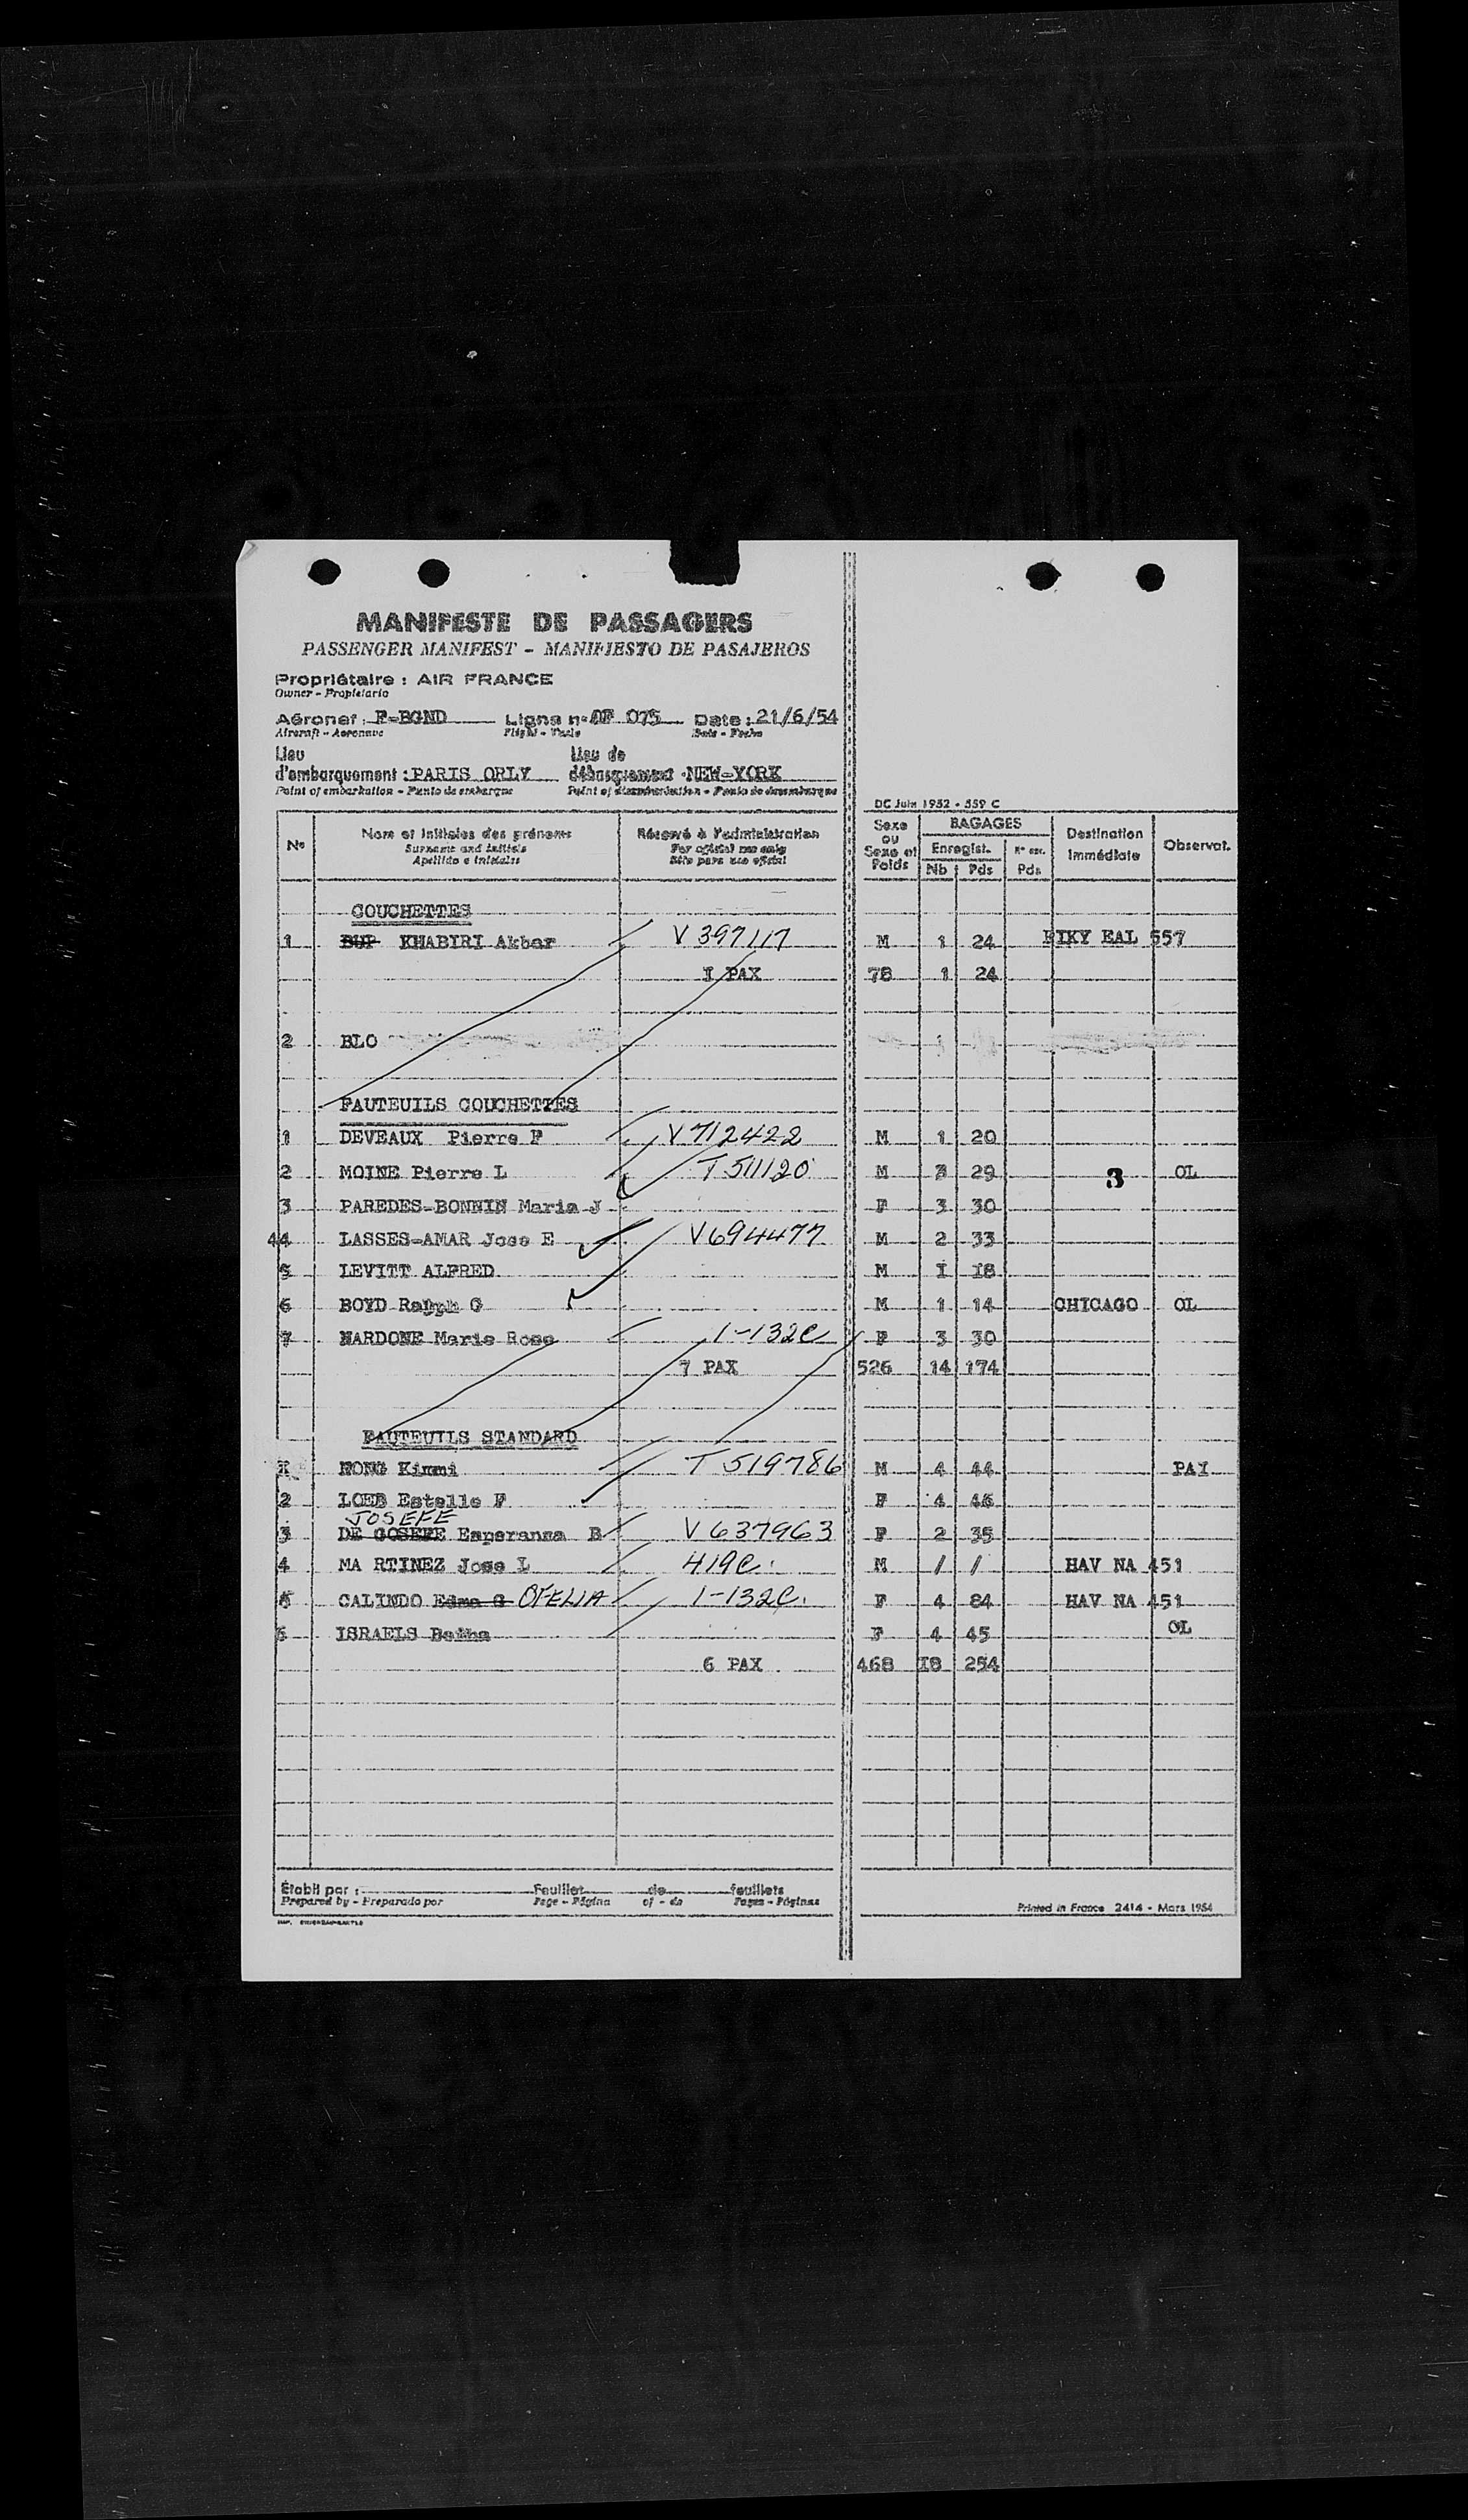 MANIFESTE DE PASSAGERS
PASSENGER MANIFEST - MANIFIESTO DE PASAJEROS
Propriétaire : AIR FRANCE
Owner - Propietario
Aéronef : F-BGND Ligne n° AF 075 Date : 21/6/54
Aircraft - Aeronave Flight - Date - Fecha
Lieu Lieu de
d'embarquement : PARIS ORLY débarquement : NEW-YORK
Point of embarkation - Punto de embarque Point of disembarkation - Punto de desembarque
DC Juin 1952 - 559 C
N° Nom et initiales des prénoms Réservé à l'administration Sexe ou Sexe et Poids BAGAGES Destination immédiate Observat.
Surname and initials For official use only Enregist. N° enr.
Apellido e iniciales Sitio para uso oficial Nb Pds Pds
COUCHETTES
1 BUP KHABIRI Akbar V 397117 M 1 24 EAL 557
I PAX 78 1 24
2 BLO
FAUTEUILS COUCHETTES
1 DEVEAUX Pierre F V 712422 M 1 20
2 MOINE Pierre L T 511120 M 3 29 3 OL
3 PAREDES-BONNIN Maria J F 3 30
44 LASSES-AMAR Jose E V694477 M 2 33
5 LEVITT ALFRED M I I8
6 BOYD Ralph G M 1 14 CHICAGO OL
7 NARDONE Marie Rose 1-132C F 3 30
7 PAX 526 14 174
FAUTEUILS STANDARD
I HONG Kimmi T 519786 M 4 44 PAI
2 LOEB Estelle F F 4 46
JOSEFE
3 DE GOSEFE Esperansa B V 637963 F 2 35
4 MA RTINEZ Jose L 419C. M / / HAV NA 451
5 GALINDO Edma G OFELIA 1-132C. F 4 84 HAV NA 451
6 ISRAELS Betha F 4 45 OL
6 PAX 468 I8 254
Établi par : Feuillet de feuillets
Prepared by - Preparado por Page - Página of - de Pages - Páginas
Printed in France 2414 - Mars 1954